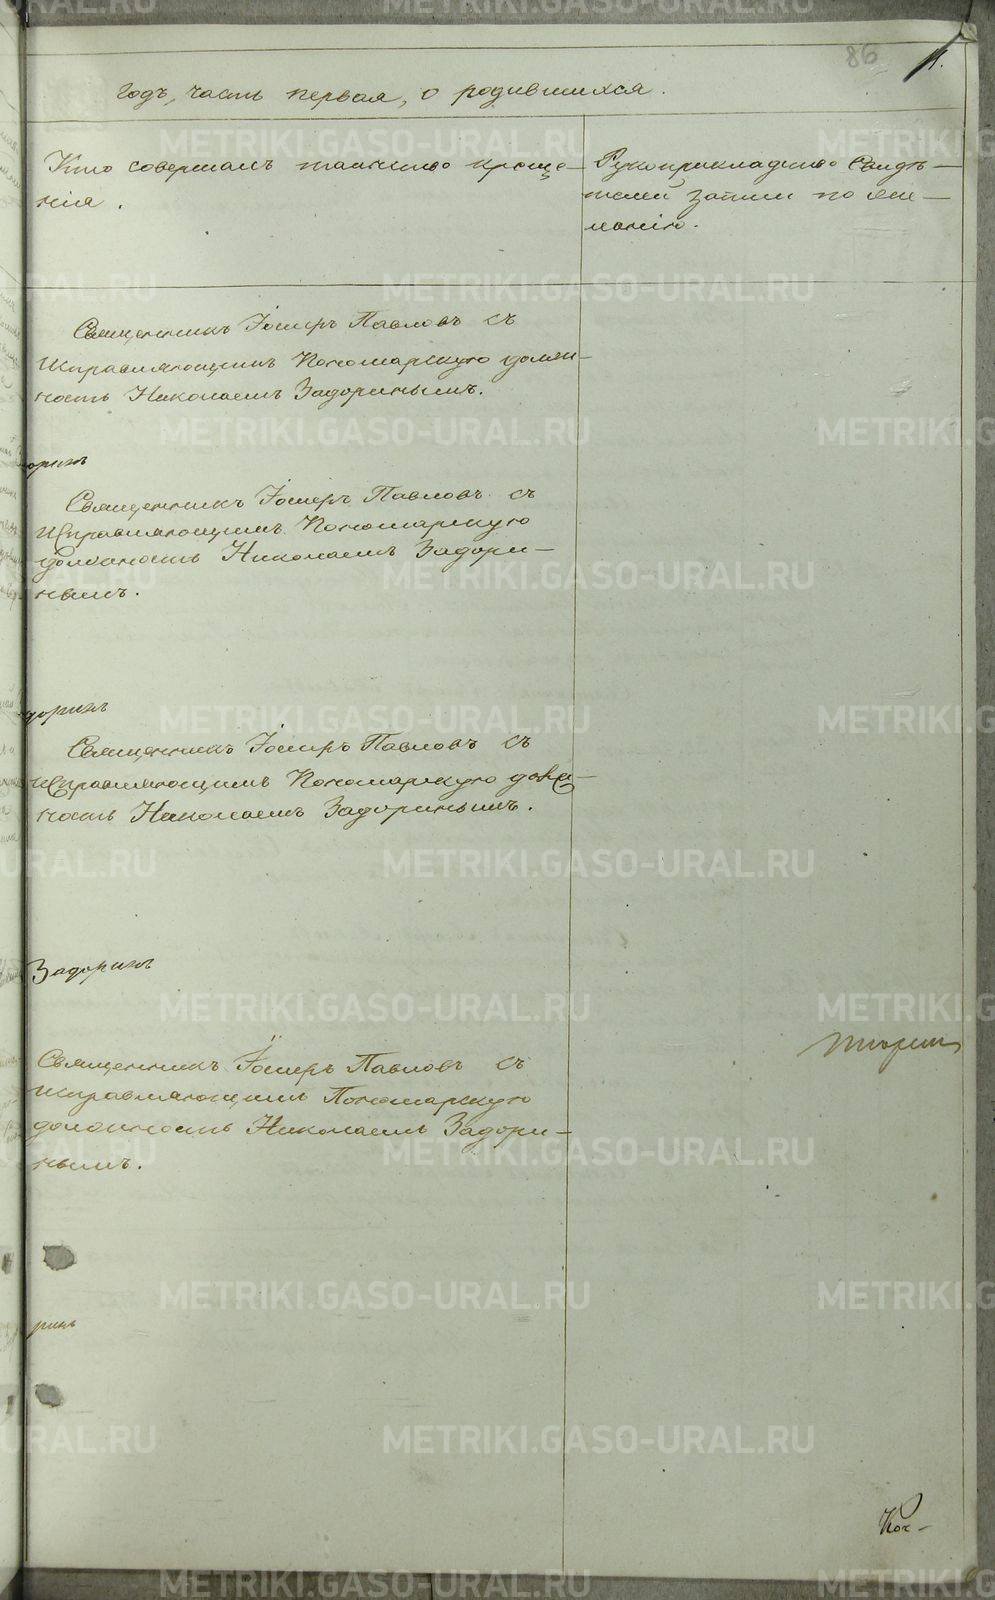 86
11.
годъ, часть первая, о родившихся.
Кто совершалъ таинство креще-
нія.
Рукоприкладство свидѣ-
телей записи по же-
ланію.
Священникъ Іосифъ Павловъ съ
исправляющимъ Пономарскую долж-
ность Николаемъ Задоринымъ.
оринъ
Священникъ Іосифъ Павловъ съ
исправляющимъ Пономарскую
должность Николаемъ Задори-
нымъ.
доринъ
Священникъ Іосифъ Павловъ съ
исправляющимъ Пономарскую долж-
ность Николаемъ Задоринымъ.
Задоринъ
Священникъ Іосифъ Павловъ съ
исправляющимъ Пономарскую
должность Николаемъ Задори-
нымъ.
ринъ
METRIKI.GASO-URAL.RU